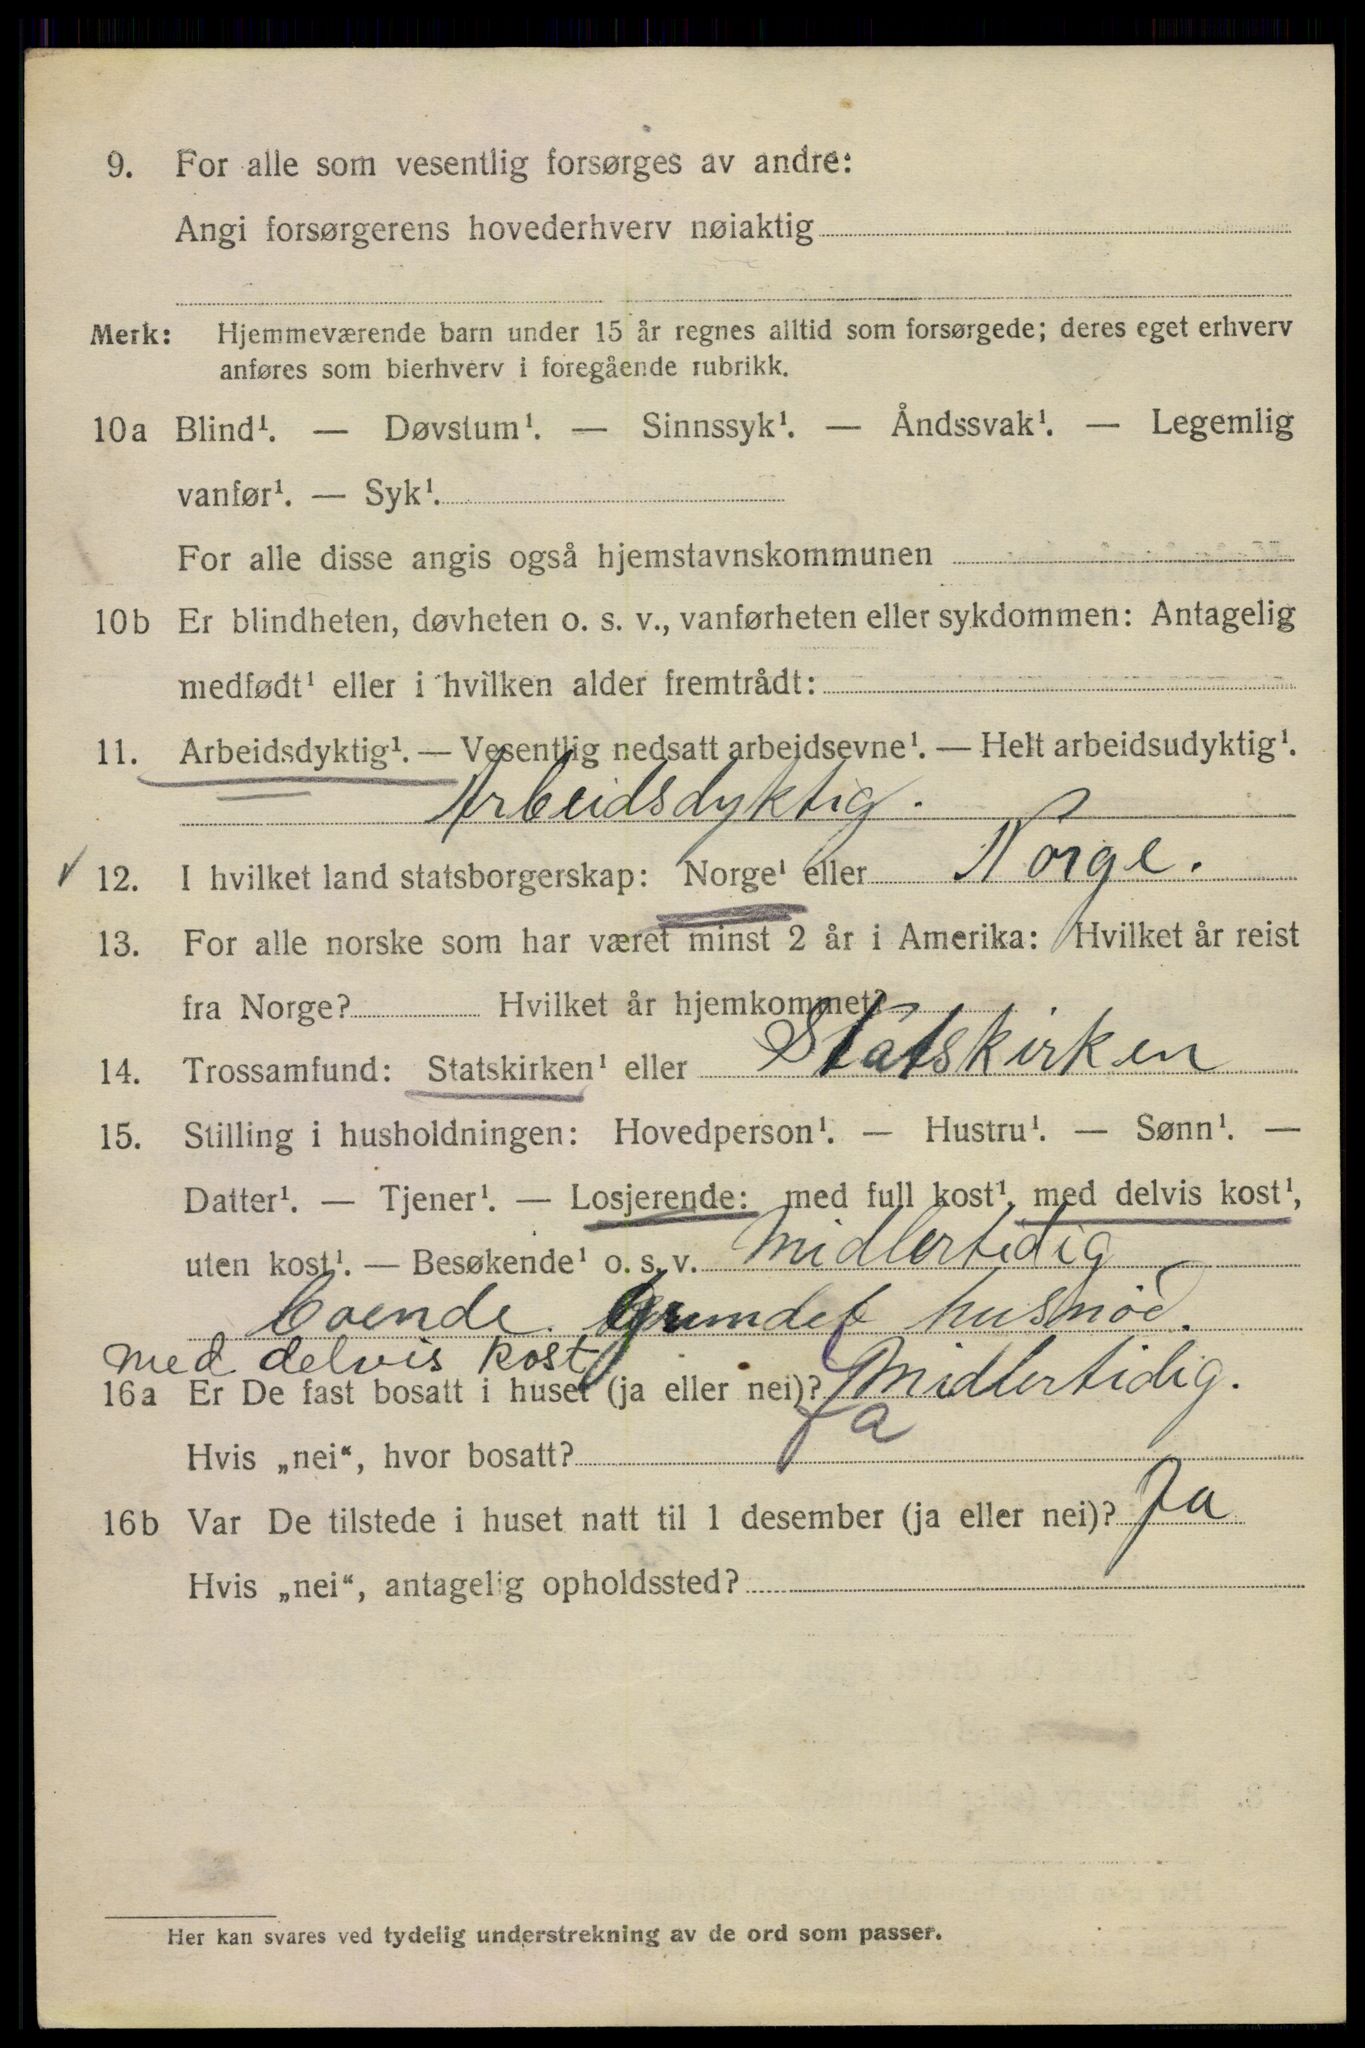 9. For alle som vesentlig forsørges av andre:
Angi forsørgerens hovederhverv nøiaktig
Merk: Hjemmeværende barn under 15 år regnes alltid som forsørgede; deres eget erhverv
anføres som bierhverv i foregående rubrikk.
10a Blind¹. — Døvstum¹. — Sinnssyk¹. — Åndssvak¹. — Legemlig
vanfør¹. — Syk¹.
For alle disse angis også hjemstavnskommunen
10b Er blindheten, døvheten o. s. v., vanførheten eller sykdommen: Antagelig
medfødt¹ eller i hvilken alder fremtrådt:
11. Arbeidsdyktig¹. — Vesentlig nedsatt arbeidsevne¹. — Helt arbeidsudyktig¹.
Arbeidsdyktig.
12. I hvilket land statsborgerskap: Norge¹ eller Norge.
13. For alle norske som har været minst 2 år i Amerika: Hvilket år reist
fra Norge? Hvilket år hjemkommet?
14. Trossamfund: Statskirken¹ eller Statskirken
15. Stilling i husholdningen: Hovedperson¹. — Hustru¹. — Sønn¹. —
Datter¹. — Tjener¹. — Losjerende: med full kost¹, med delvis kost¹,
uten kost¹. — Besøkende¹ o. s. v. Midlertidig
boende grundet husnød.
med delvis kost
16a Er De fast bosatt i huset (ja eller nei)? Midlertidig.
Ja
Hvis „nei“, hvor bosatt?
16b Var De tilstede i huset natt til 1 desember (ja eller nei)? Ja
Hvis „nei“, antagelig opholdssted?
Her kan svares ved tydelig understrekning av de ord som passer.